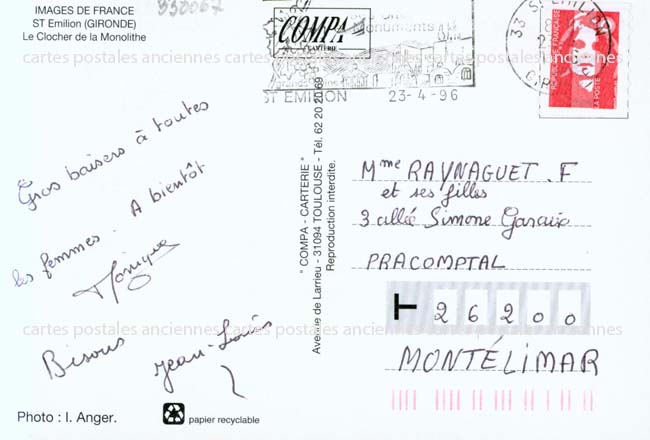 IMAGES DE FRANCE
ST Emilion (GIRONDE)
Le Clocher de la Monolithe
338067
COMPA
CARTERIE
Monuments
ST EMILION 23-4-96
33 ST EMILION
REPUBLIQUE FRANÇAISE
LA POSTE
cartes postales anciennes cartes postales anciennes cartes postales anciennes
Gros baisers à toutes
les femmes. A bientôt
Monique
Bisous Jean-Louis
" COMPA - CARTERIE "
Avenue de Larrieu - 31094 TOULOUSE - Tél. 62 20 20 69
Reproduction interdite.
Mme RAYNAGUET. F
et ses filles
3 allée Simone Garaix
PRACOMPTAL
26200
cartes postales anciennes cartes postales anciennes cartes postales anciennes
MONTÉLIMAR
Photo : I. Anger.
papier recyclable